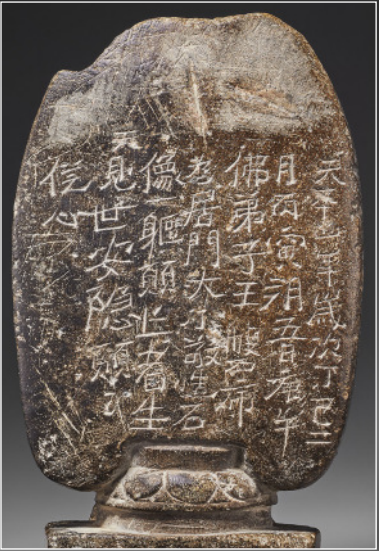 天平四年歲次丁巳二
月丙寅朔五日庚午
佛弟子王
為居門大小敬造石
像一軀願亡者生
天見世安隐願
信心